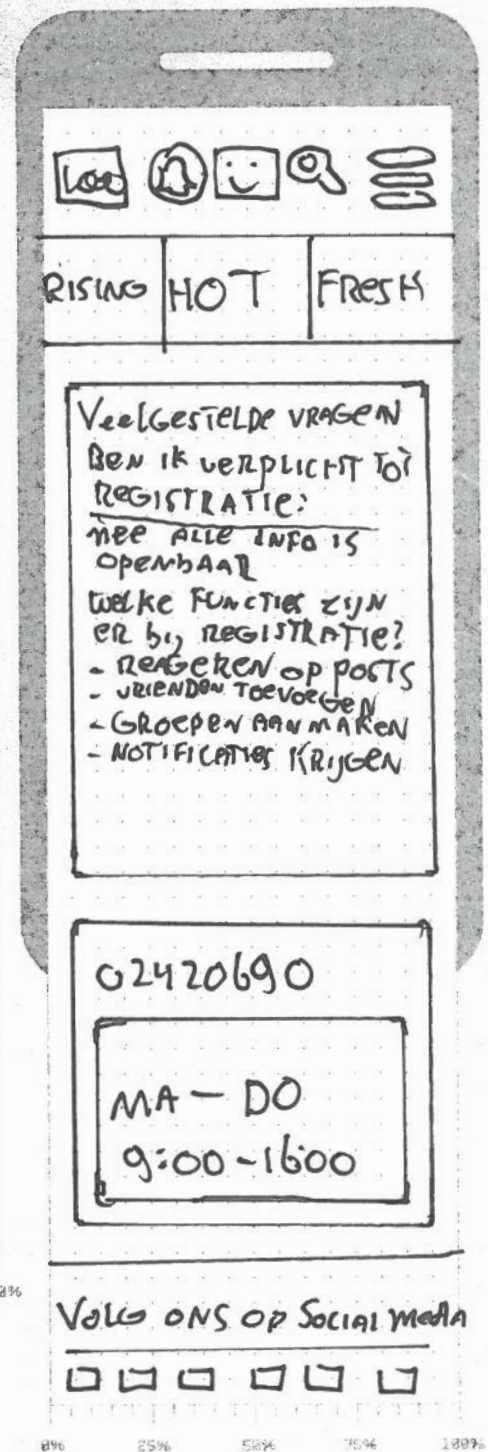 LOGO
RISING HOT FRESH
VEELGESTELDE VRAGEN
BEN IK VERPLICHT TOT
REGISTRATIE?
NEE ALLE INFO IS
OPENBAAR
WELKE FUNCTIES ZIJN
ER BIJ REGISTRATIE?
- REAGEREN OP POSTS
- VRIENDEN TOEVOEGEN
- GROEPEN AANMAKEN
- NOTIFICATIES KRIJGEN
02420690
MA - DO
9:00 - 16:00
VOLG ONS OP SOCIAL MEDIA
0% 25% 50% 75% 100%